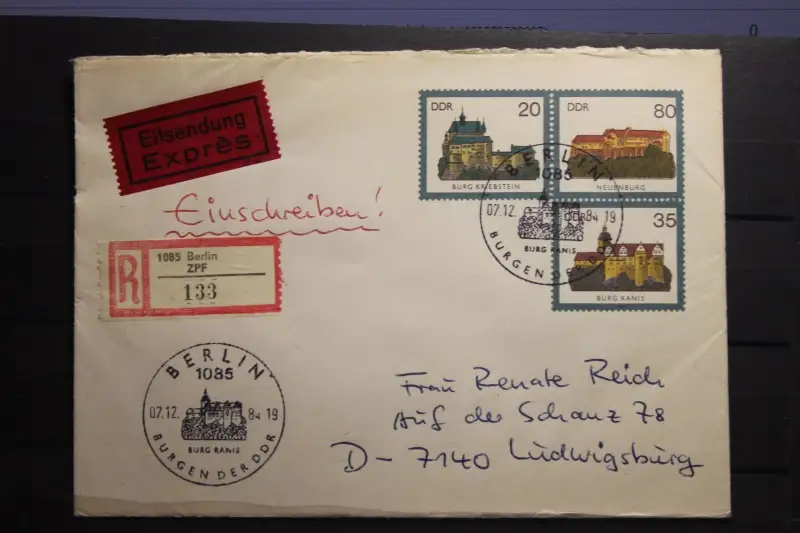 Eilsendung
Exprès
DDR 20
BURG KRIEBSTEIN
DDR 80
NEUENBURG
35
BURG RANIS
BERLIN
1085
07.12. 84 19
BURG RANIS
BURGEN DER
Einschreiben!
R
1085 Berlin
ZPF
133
BERLIN
1085
07.12. 84 19
BURG RANIS
BURGEN DER DDR
Frau Renate Reich
Auf der Schanz 78
D-7140 Ludwigsburg